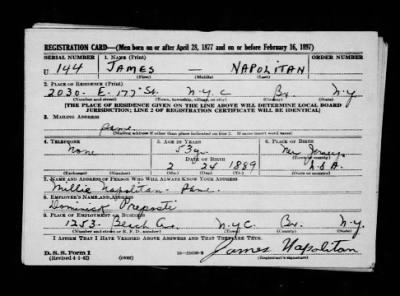 REGISTRATION CARD—(Men born on or after April 28, 1877 and on or before February 16, 1897)
SERIAL NUMBER 1. NAME (Print)
U 144 JAMES — NAPOLITAN
(First) (Middle) (Last)
2. PLACE OF RESIDENCE (Print)
2030 - E. 177 St. N.Y.C Bx. N.Y
(Number and street) (Town, township, village, or city) (County) (State)
[THE PLACE OF RESIDENCE GIVEN ON THE LINE ABOVE WILL DETERMINE LOCAL BOARD
JURISDICTION; LINE 2 OF REGISTRATION CERTIFICATE WILL BE IDENTICAL]
3. MAILING ADDRESS
Same.
[Mailing address if other than place indicated on line 2. If same insert word same]
4. TELEPHONE 5. AGE IN YEARS 6. PLACE OF BIRTH
None 53 New Jersey
DATE OF BIRTH
2 24 1889 U.S.A.
(Exchange) (Number) (Mo.) (Day) (Yr.) (State or country)
7. NAME AND ADDRESS OF PERSON WHO WILL ALWAYS KNOW YOUR ADDRESS
Millie Napolitan - Same.
8. EMPLOYER'S NAME AND ADDRESS
Dominick
9. PLACE OF EMPLOYMENT OR BUSINESS
1253 - Beach Av. N.Y.C. Bx. N.Y.
(Number and street or R. F. D. number) (Town) (County) (State)
I AFFIRM THAT I HAVE VERIFIED ABOVE ANSWERS AND THAT THEY ARE TRUE.
D. S. S. Form 1
(Revised 4-1-42) (over) James Napolitan
(Registrant's signature)